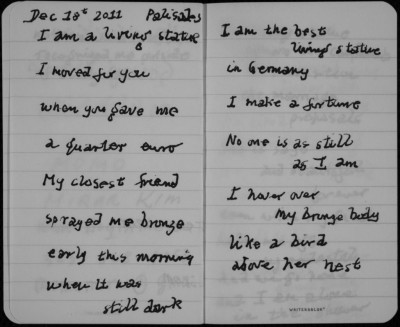 Dec 18th 2011 Palisades
I am a living statue
I moved for you
when you gave me
a quarter euro
My closest friend
sprayed me bronze
early this morning
when it was
still dark
I am the best
living statue
in Germany
I make a fortune
No one is as still
as I am
I hover over
my bronze body
like a bird
above her nest